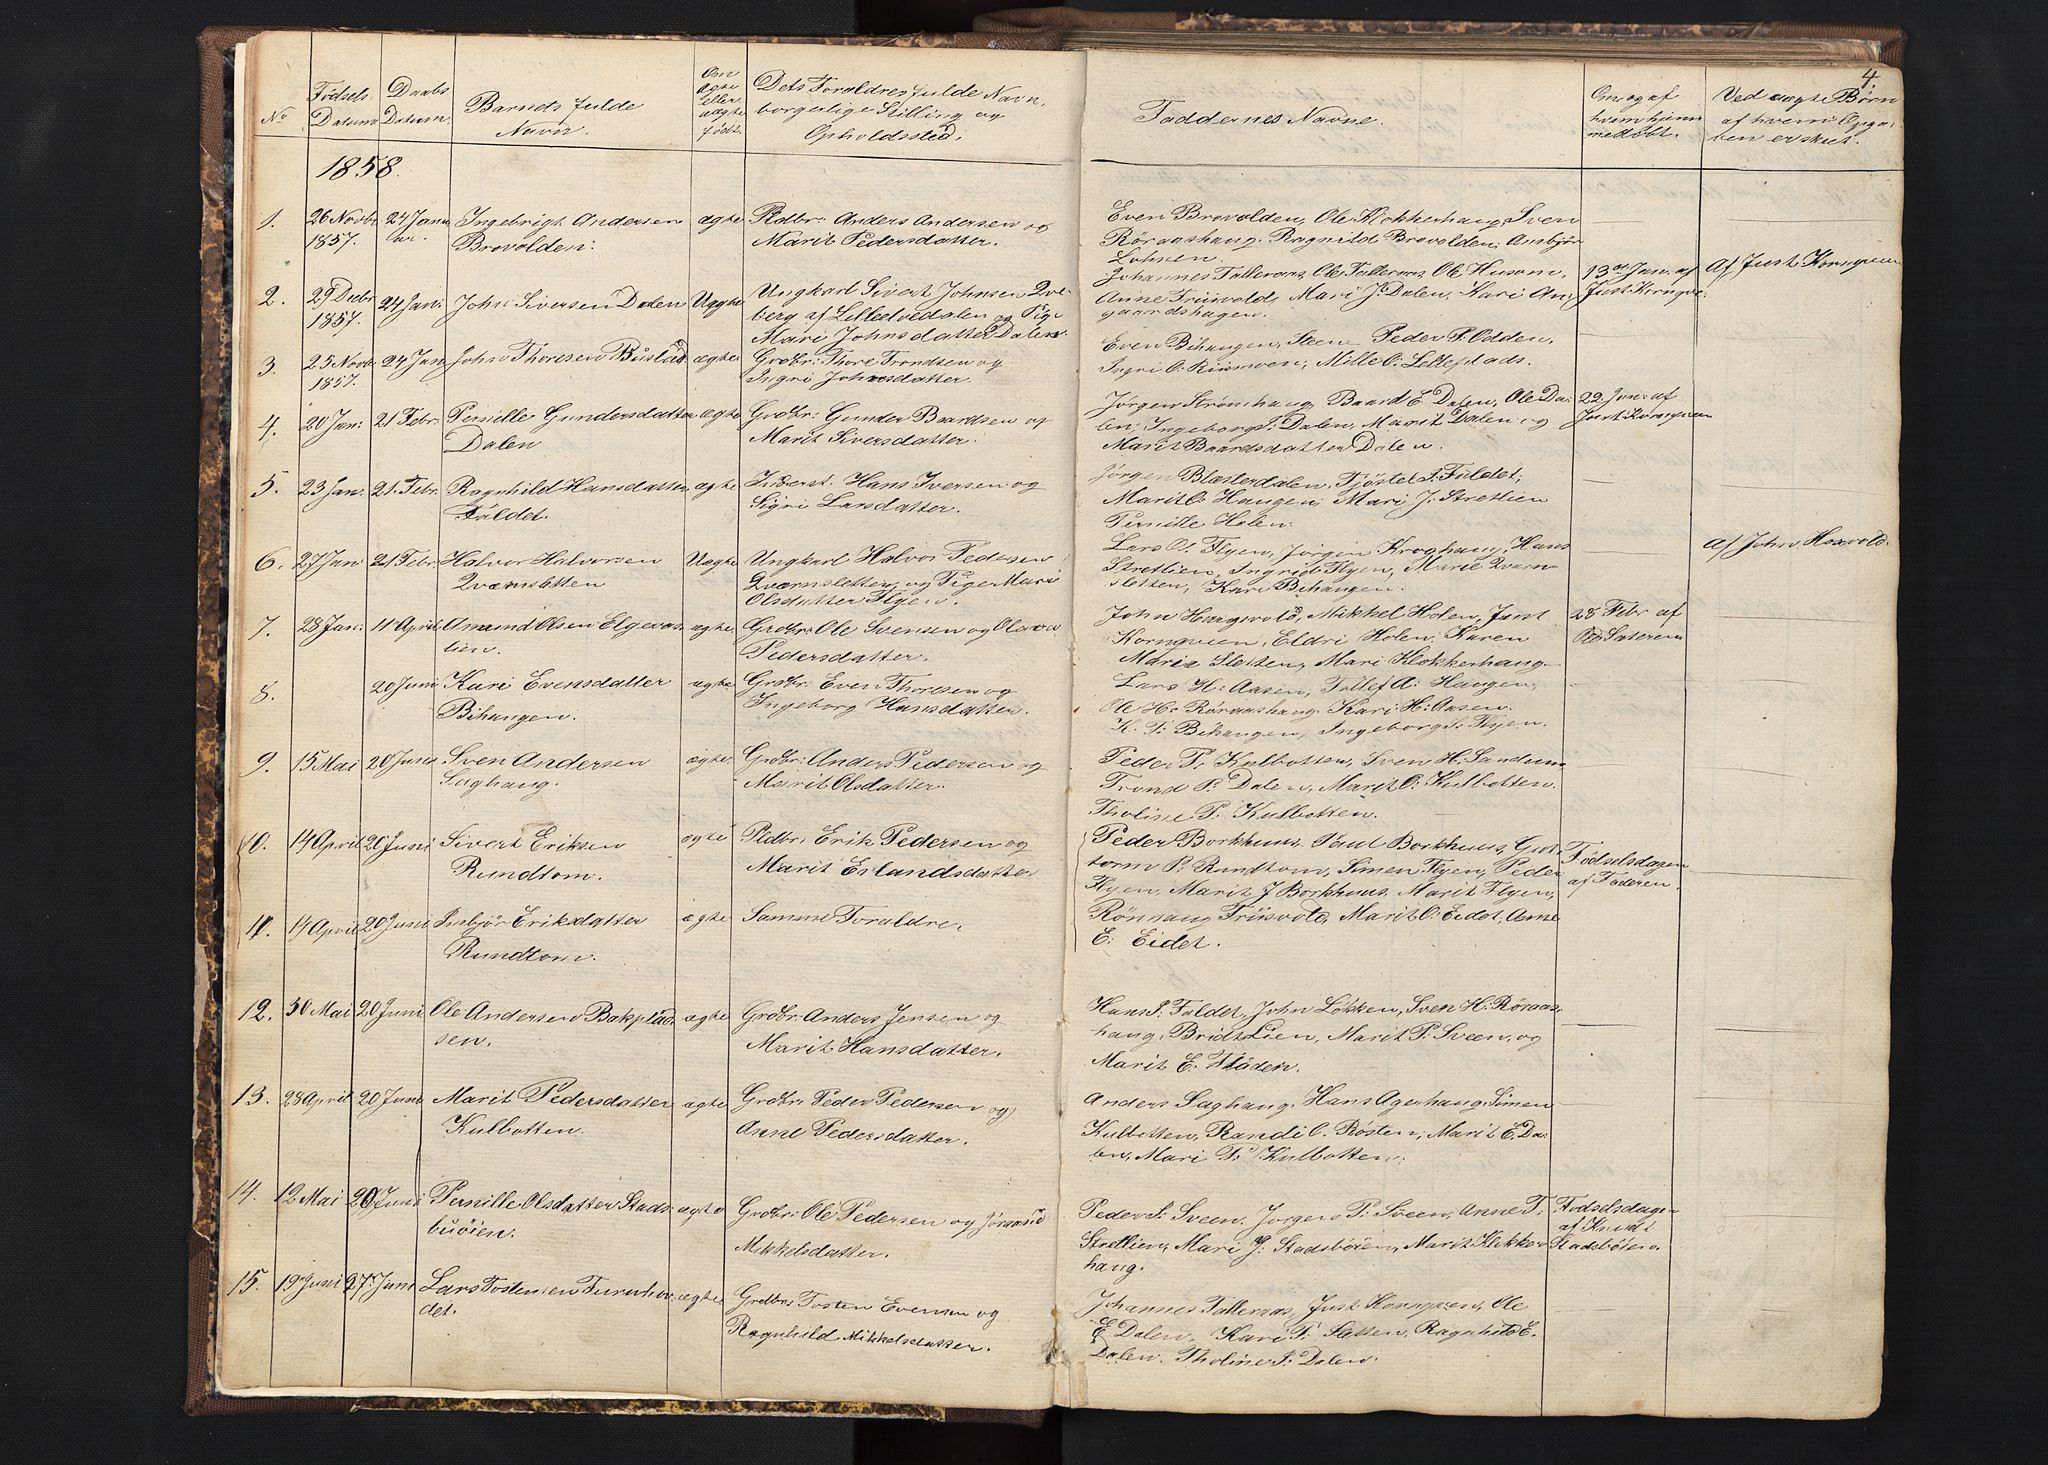 4
No
Fødsels Datum
Daabs Datum
Barnets fulde
Navn.
Om
Ægte
eller
uægte
født.
Dets Foraldres fulde Navn,
borgerlige Stilling og
Opholdssted.
Faddernes Navne.
Om og af
hvem hjemmedøbt.
Ved uægte Børn
af hvem Opga-
ben er skeet.
1858.
1. 26 Novbr 1857. 24 Janu- ar. Ingebrigt Andersen
Brovolden. ægte Pldbr: Anders Andersen og
Marit Pedersdatter.
Even Brovolden, Ole Klokkerhaug, Sven
Røraashaug, Ragnild Brovolden, Ambjør
Lohnen.
2. 29 Decbr 1857. 24 Jan: John Siversen Dalen Uægte Ungkarl Sivert Johnsen Qve-
berg af Lilleelvedalen og Pige
Mari Johnsdatter Dalen.
Johannes Talleraas, Ole Talleraas, Ole Husom,
Anne Friisvold, Mari J. Dalen, Kari An-
gaardshagen.
13de Jan. af
Just Kornqve-
Af Just Kornqveen
3. 25 Novbr 1857. 24 Jan John Thoresen Buslid ægte Grdbr: Thore Trondsen og
Ingri Johnsdatter.
Even Bihaugen, Steen Peder P. Odden,
Ingri O. Riisnoen, Mille O. Lilleplads.
4. 20 Jan: 21 Febr: Pernille Gundersdatter
Dalen ægte Grdbr: Gunder Baardsen og
Marit Siversdatter.
Jørgen Strømhaug, Baard E Dalen, Ole Da-
len, Ingeborg S. Dalen, Marit Dalen og
Marit Baardsdatter Dalen.
22 Jan: af
Just Kornqveen
5. 23 Jan: 21. Febr. Ragnhild Hansdatter
Faldet. ægte Inderst. Hans Iversen og
Sigri Larsdatter.
Jørgen Blæsterdalen, Tjøstel S. Faldet,
Marit O. Haugen, Mari J. Stretlien
Pernille Holen.
6. 27 Jan 21 Febr Halvor Halvorsen
Qvernsletten Uægte Ungkarl Halvor Pedersen
Qvernsletten og Pige Mari
Olsdatter Flyen.
Lars O. Flyen, Jørgen Kroghaug, Hans
Stretlien, Ingrid Flyen, Marie Qvern-
sletten, Kari Bihaugen.
Af John Haavold.
7. 28 Jan: 11 April Amund Olsen Elgevas-
lien. ægte. Grdbr: Ole Svensen og Olava
Pedersdatter.
John Haugsvold, Mikkel Holen, Just
Kornqveen, Eldri Holen, Karen
Maria Sletten, Mari Klokkerhaug
28 Febr af
8. 20 Juni Kari Evensdatter
Bihaugen. ægte Grdbr: Even Thoresen og
Ingeborg Hansdatter.
Lars H: Aasen, Tollef A: Haugen,
Ole H: Røraashaug, Kari H: Aasen.
K. P: Bihaugen, Ingeborg S: Flyen.
9. 15 Mai 20 Juni Sven Andersen
Saghaug. ægte Grdbr: Anders Pedersen og
Marit Olsdatter.
Peder P. Kulbotten, Sven H. Sandum,
Trond P. Dalen, Marit O: Kulbotten.
Tholine P: Kulbotten.
10. 14 April 20 Juni Sivert Eriksen
Rundtom. ægte Pldbr: Erik Pedersen og
Marit Erlandsdatter
Peder Borkhuus, Paul Borkhuus, Gut-
torm P: Rundtom, Simen Flyen, Peder
Flyen, Marit J Borkhuus, Marit Flyen,
Fødselsdagen
af Faderen.
11. 14 April 20 Juni Imbjør Eriksdatter
Rundtom. ægte Samme Foraldre.
Rønnaug Friisvold, Marit O: Eidet, Anne
E: Eidet.
12. 30 Mai 20 Juni Ole Andersen Bakplad-
sen. ægte Grdbr: Anders Jensen og
Marit Hansdatter.
Hans P. Faldet, John Løkken, Sven H: Røraas-
haug, Bridt Lien, Marit P: Sveen, og
Marit E. Støden.
13. 28 April 20 Juni Marit Pedersdatter
Kulbotten. ægte Grdbr: Peder Pedersen og
Anne Pedersdatter.
Anders Saghaug, Hans Agerhaug, Simen
Kulbotten, Randi O. Røsten, Marit E. Da-
len, Mari P: Kulbotten.
14. 12 Mai 20 Juni Pernille Olsdatter Stads-
buøien. ægte Grdbr: Ole Pedersen og Jøranid
Mikkelsdatter.
Peder S: Sveen, Jørgen P: Sveen, Anne T.
Stretlien, Mari J: Stadsbøien, Marit Klokker-
haug.
Fødselsdagen
af Knudt
Stadsbøien.
15. 19 Juni 27. Juni Lars Tostensen Furuho-
det. ægte Grdbr: Tosten Evensen og
Ragnhild Mikkelsdatter.
Johannes Talleraas, Just Kornqveen, Ole
E Dalen, Kari P: Sletten, Ragnhild E.
Dalen, Tholine S: Dalen.